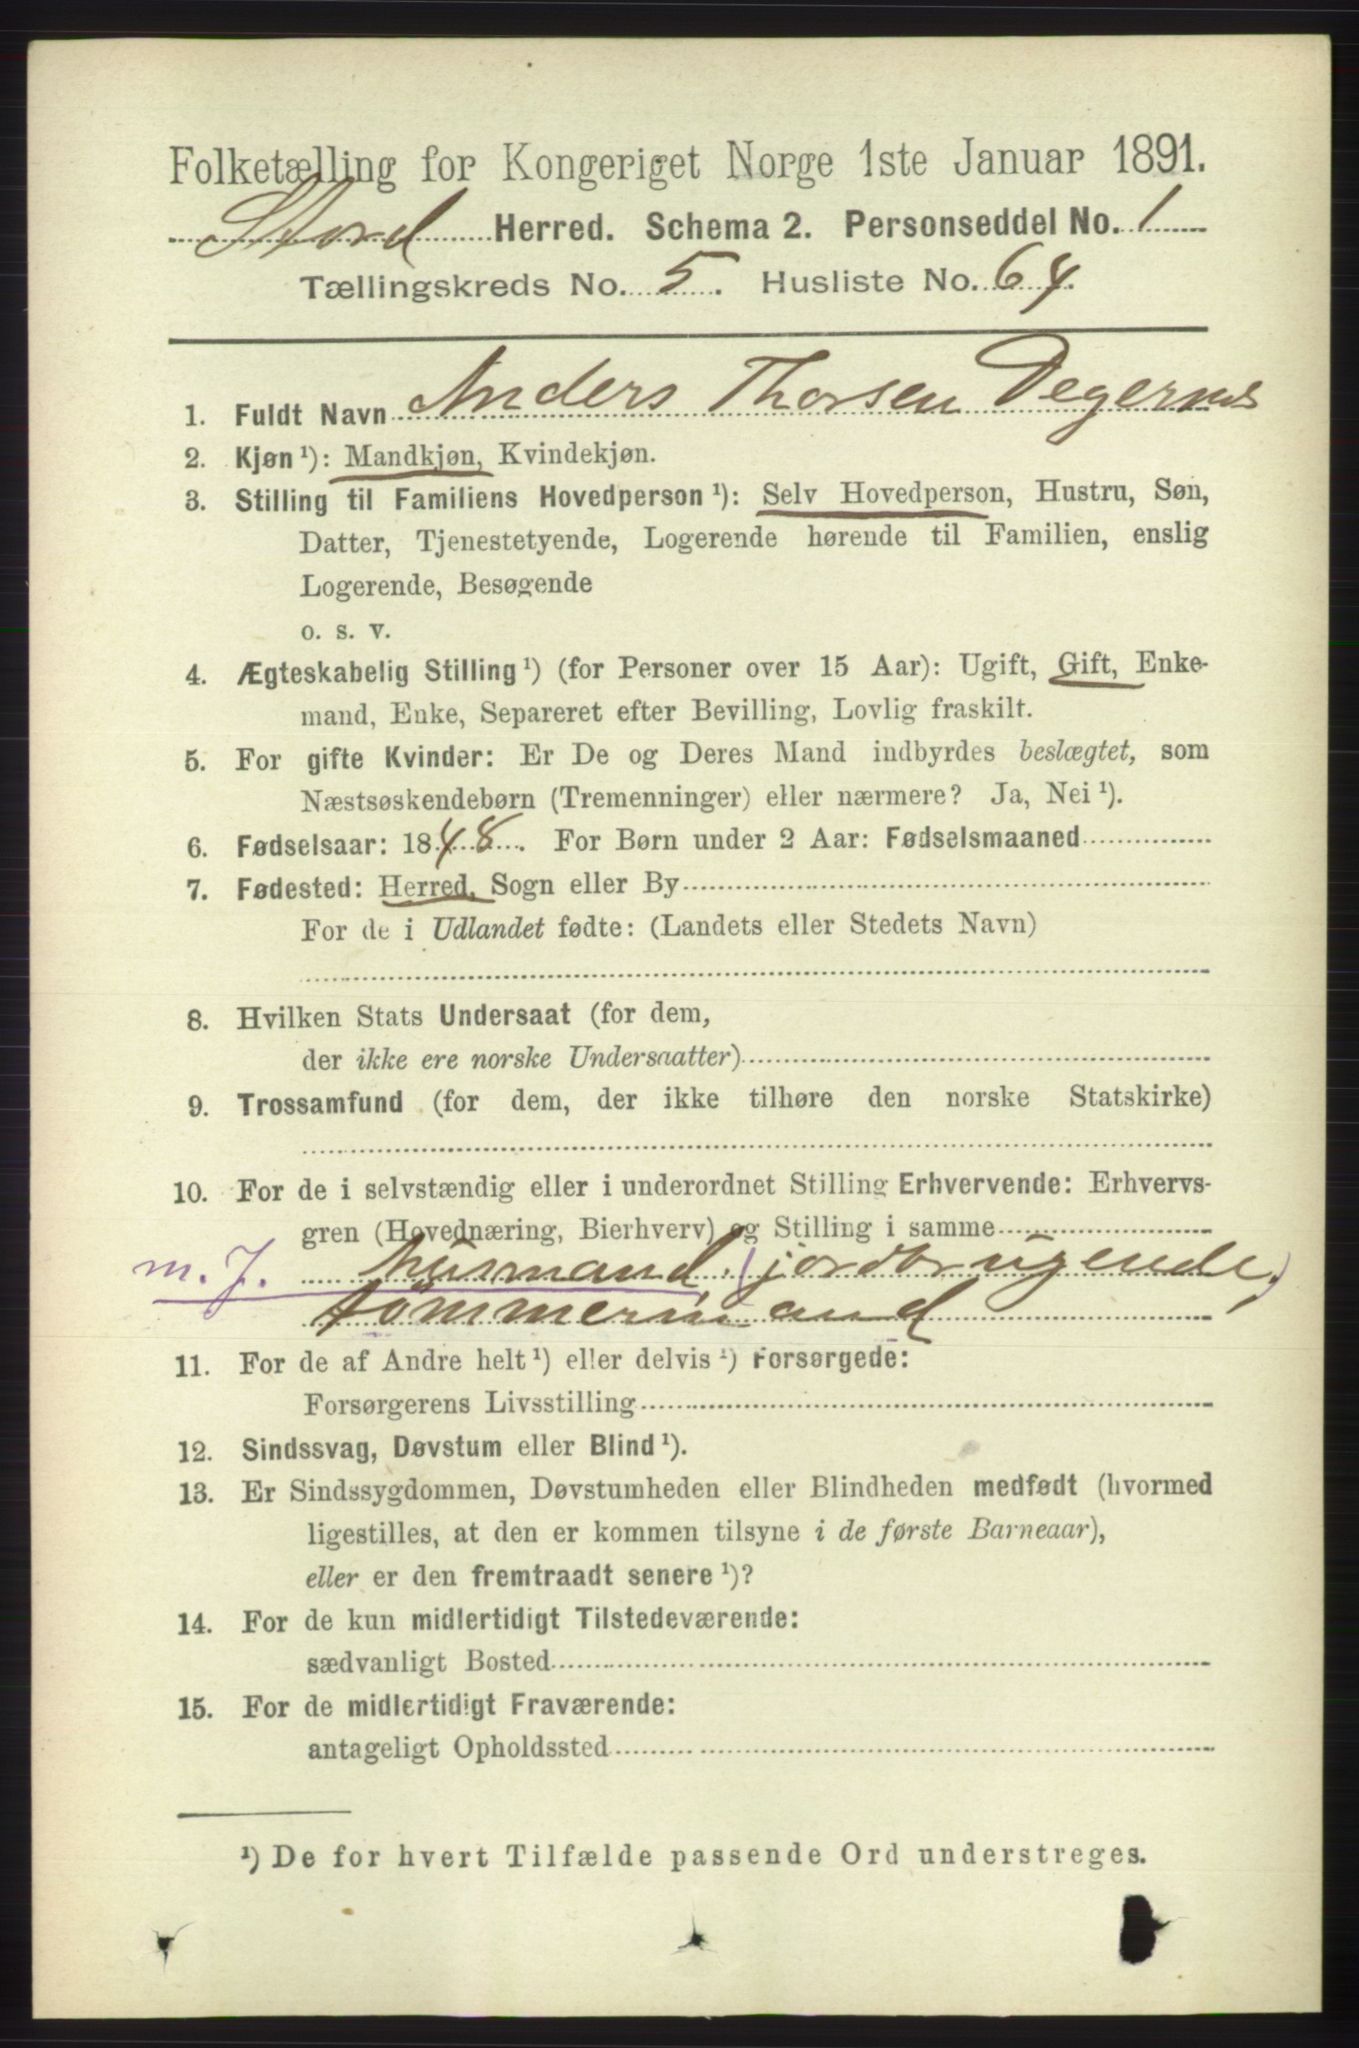 Folketælling for Kongeriget Norge 1ste Januar 1891.
Stord Herred. Schema 2. Personseddel No. 1
Tællingskreds No. 5. Husliste No. 64.
1. Fuldt Navn Anders Thorsen Degernes
2. Kjøn¹): Mandkjøn, Kvindekjøn.
3. Stilling til Familiens Hovedperson¹): Selv Hovedperson, Hustru, Søn,
Datter, Tjenestetyende, Logerende hørende til Familien, enslig
Logerende, Besøgende
o. s. v.
4. Ægteskabelig Stilling¹) (for Personer over 15 Aar): Ugift, Gift, Enke-
mand, Enke, Separeret efter Bevilling, Lovlig fraskilt.
5. For gifte Kvinder: Er De og Deres Mand indbyrdes beslægtet, som
Næstsøskendebørn (Tremenninger) eller nærmere? Ja, Nei¹).
6. Fødselsaar: 1848. For Børn under 2 Aar: Fødselsmaaned
7. Fødested: Herred, Sogn eller By
For de i Udlandet fødte: (Landets eller Stedets Navn)
8. Hvilken Stats Undersaat (for dem,
der ikke ere norske Undersaatter)
9. Trossamfund (for dem, der ikke tilhøre den norske Statskirke)
10. For de i selvstændig eller i underordnet Stilling Erhvervende: Erhvervs-
gren (Hovednæring, Bierhverv) og Stilling i samme
m. J. husmand, (jordbrugende,)
tömmermand
11. For de af Andre helt¹) eller delvis¹) Forsørgede:
Forsørgerens Livsstilling
12. Sindssvag, Døvstum eller Blind¹).
13. Er Sindssygdommen, Døvstumheden eller Blindheden medfødt (hvormed
ligestilles, at den er kommen tilsyne i de første Barneaar),
eller er den fremtraadt senere¹)?
14. For de kun midlertidigt Tilstedeværende:
sædvanligt Bosted
15. For de midlertidigt Fraværende:
antageligt Opholdssted
¹) De for hvert Tilfælde passende Ord understreges.